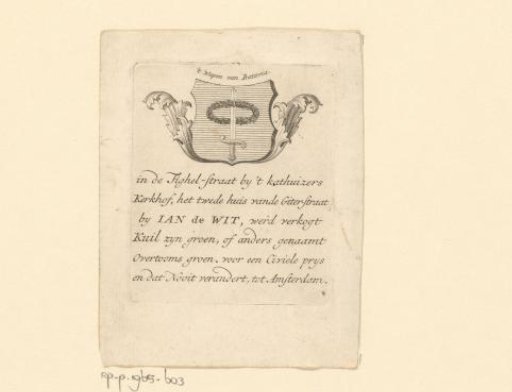 't Wapen van Batavia.
in de Tighel-straat by 't kathuizers
Kerkhof, het twede huis vande Giterstraat,
by IAN de WIT, werd verkogt
Kuil zyn groen, of anders genaamt
Overtooms groen, voor een Civiele prys
en dat Nooit verandert, tot Amsterdam.
rp-p-1965-603